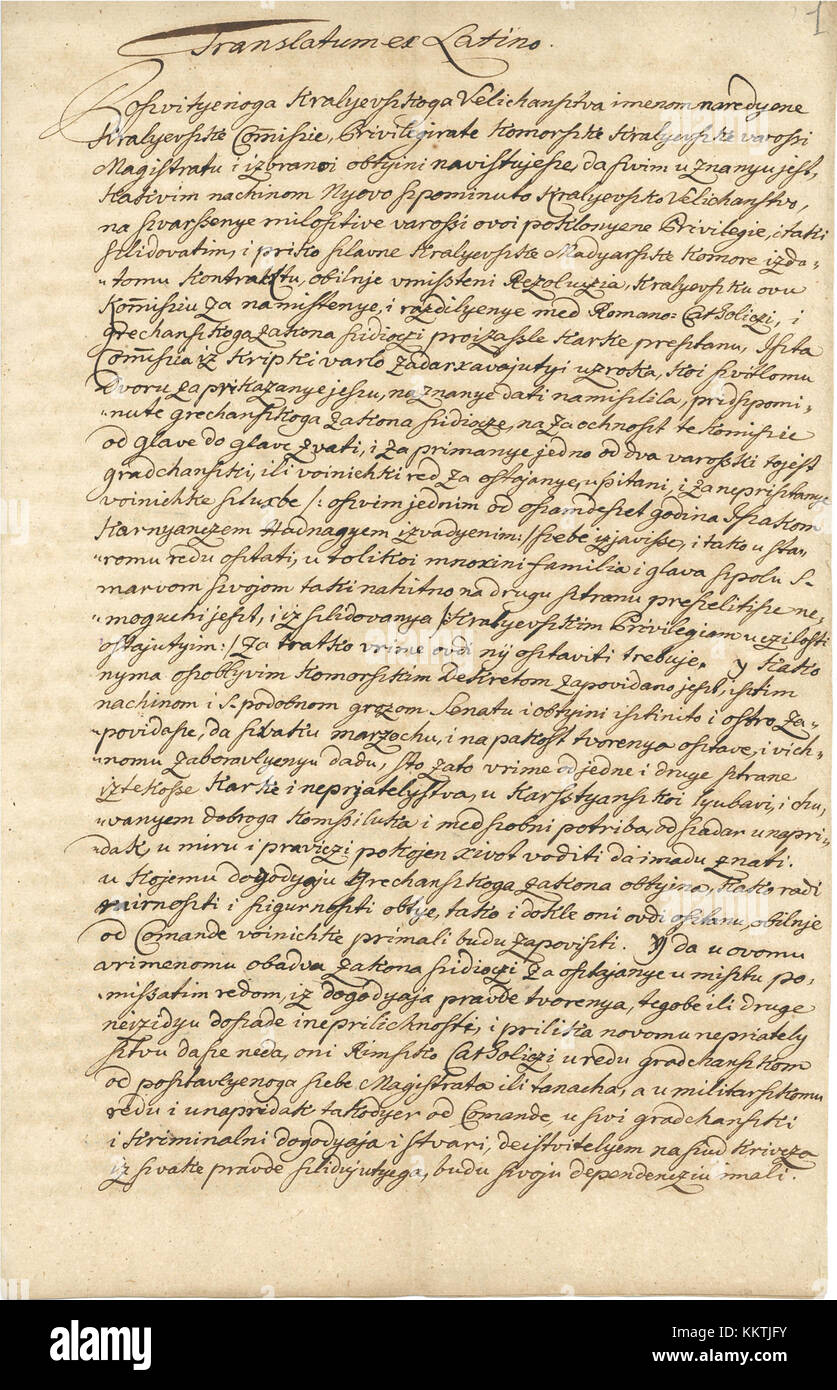 1
Translatum ex Latino.
Posvityenoga Kralyevskoga Velichanstva imenom naredyene
Kralyevske Comissie, Privilegirate Komorske Kralyevske varossi
Magistratu i izbranoi obtyini navistujese, da svim u znanyu jest,
kakvim nachinom Nyovo spominuto Kralyevsko Velichanstvo,
na svarssenye milostive varossi ovoi poklonyene Privilegie, i taki
slidovatim, i priko slavne Kralyevske Madyarske Komore izda-
-tomu Kontraktu, obilnje vmissteni Rezoluzia, Kralyevsku ovu
Komissiu za namistenye, i razdilyenye med Romano=Catholiczi, i
grechanskoga zakona sidioczi proizassle karke prestanu, Ista
Comissia iz kripki varlo zadarxavajutyi uzroka, koi svitlomu
Dvoru zaprikazanye jesu, na znanye dati namislila, pridspomi-
-nute grechanskoga zakona sidiocze, na za ochnost te Komissie
od glave do glave zvati, i za primanye jedno od dva varosski to jest
gradchanski, ili voinichki red za ostajanye, upitani, i za nepristanye
voinichke sluxbe /: osvim jednim od osamdeset godina Isakom
Karnyanczem Hadnagyem izvadyenim :/ sebe izjavisse, i tako u sta-
-romu redu ostati, u tolikoi mnoxini familia i glava spolu s-
marvom svojom taki nahitno na drugu stranu preselitise ne-
-moguchi jest, i iz slidovanya /: Kralyevskim Privilegiam u czilosti
ostajutyim :/ za kratko vrime ovdi nji ostaviti trebuje. y kako
nyma osoblyvim Komorskim Dekretom zapovidano jest, istim
nachinom i s-podobnom grozom Senatu i obtyini istinito i ostro za-
-povidase, da svaku marzochu, i na pakost tvorenya ostave, i vich-
-nomu zaboravlyenyu dadu, sto zato vrime od jedne i druge strane
iztekosse karke i neprjatelystva, u Karsstyanskoi lyubavi, i chu-
-vanyem dobroga komssiluka i medsobni potriba, od sadar u napri-
-dak u miru i praviczi pokojen xivot voditi da imadu znati.
u kojemu dogodyaju Grechanskoga zakona obtyina, kako radi
mirnosti i sigurnosti obtye, tako i dokle oni ovdi ostanu, obilnje
od Comande voinichke primali budu zapovisti. y da u ovomu
vrimenomu obadva zakona sidioczi za ostajanye u mistu po-
-missatim redom, iz dogodyaja pravde tvorenya, tegobe ili druge
neizidyu dosade i neprilichnosti, i prilika novomu nepriately
stvu dase neda, oni Rimsko Catholiczi u redu gradchanskom
od postavlyenoga sebe Magistrata ili tanacha, a u militarskomu
redu i unapridak takodyer od Comande, u svi gradchanski
i kriminalni dogodyaja i stvari, deistvitelyem na sud krivcza
iz svake pravde slidujutyega, budu svoju dependencziu imali.
alamy
Image ID: KKTJFY
www.alamy.com